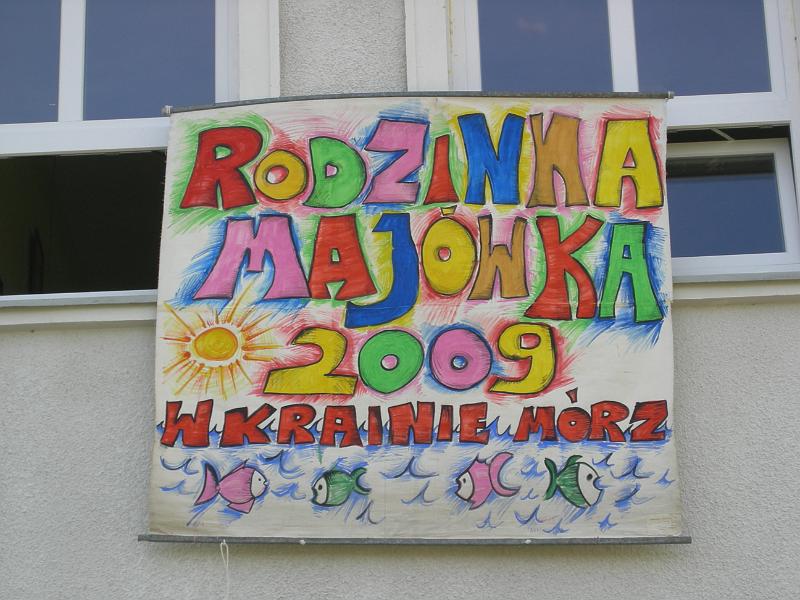 RODZINKA
MAJÓWKA
2009
W KRAINIE MÒRZ